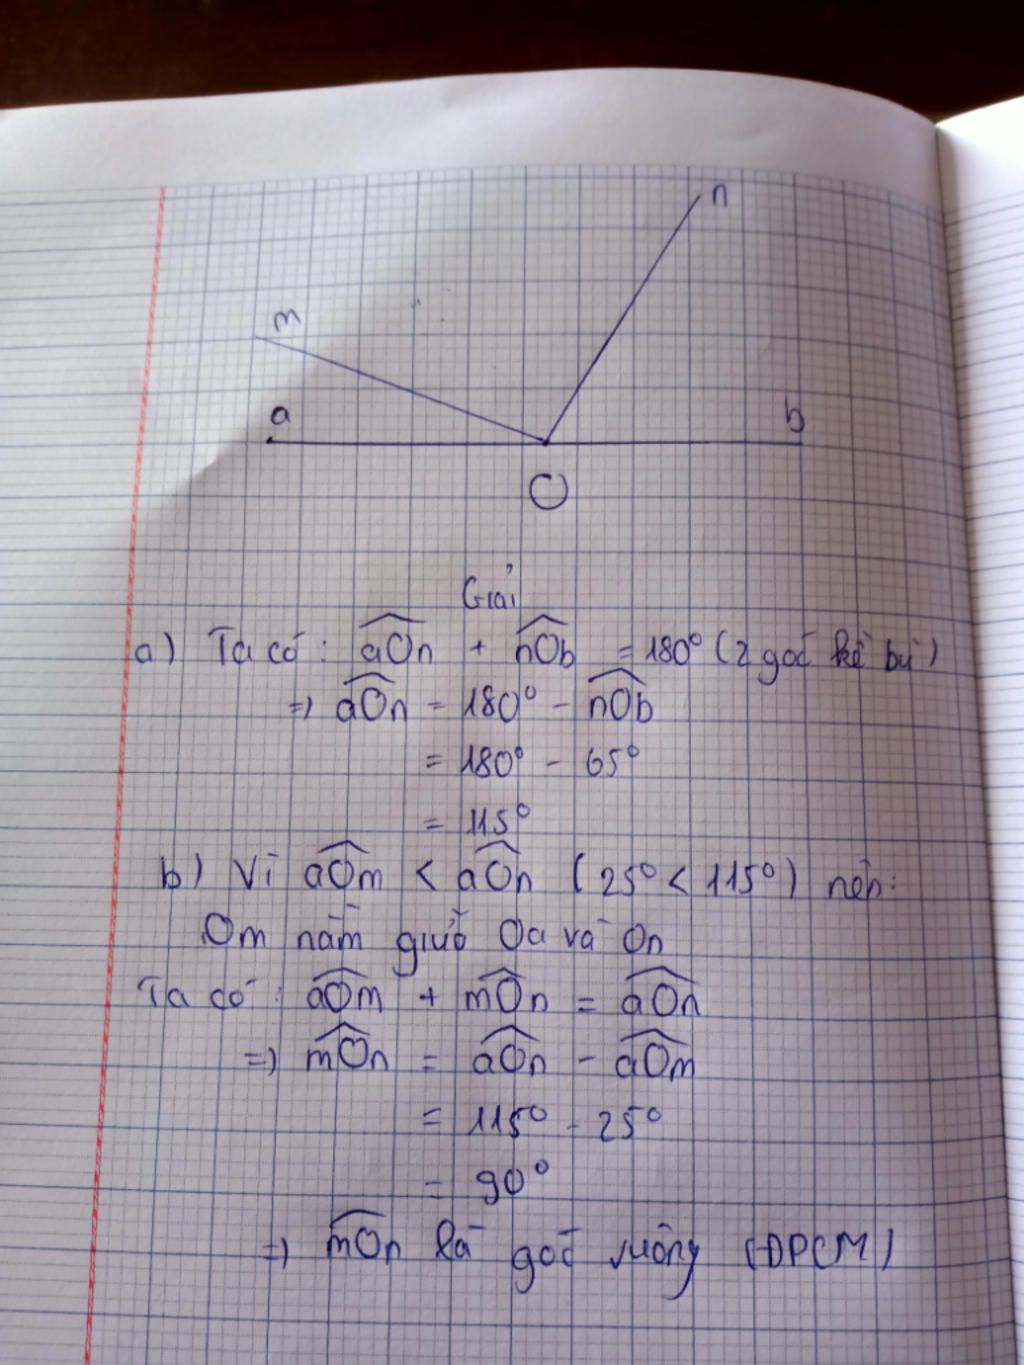 n
m
a
b
O
Giải
a) Ta có: aOn + nOb = 180° (2 góc kề bù)
=> aOn = 180° - nOb
= 180° - 65°
= 115°
b) Vì aOm < aOn (25° < 115°) nên:
Om nằm giữa Oa và On
Ta có: aOm + mOn = aOn
=> mOn = aOn - aOm
= 115° - 25°
= 90°
=> mOn là góc vuông (ĐPCM)